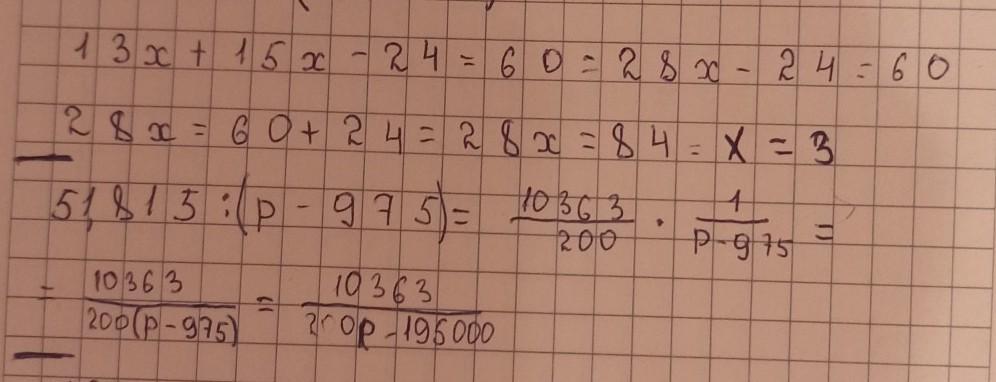 13x + 15x - 24 = 60 = 28x - 24 = 60
28x = 60 + 24 = 28x = 84 = x = 3
51,815 : (p - 975) = 10363/200 · 1/(p-975) =
= 10363/200(p-975) = 10363/200p-195000